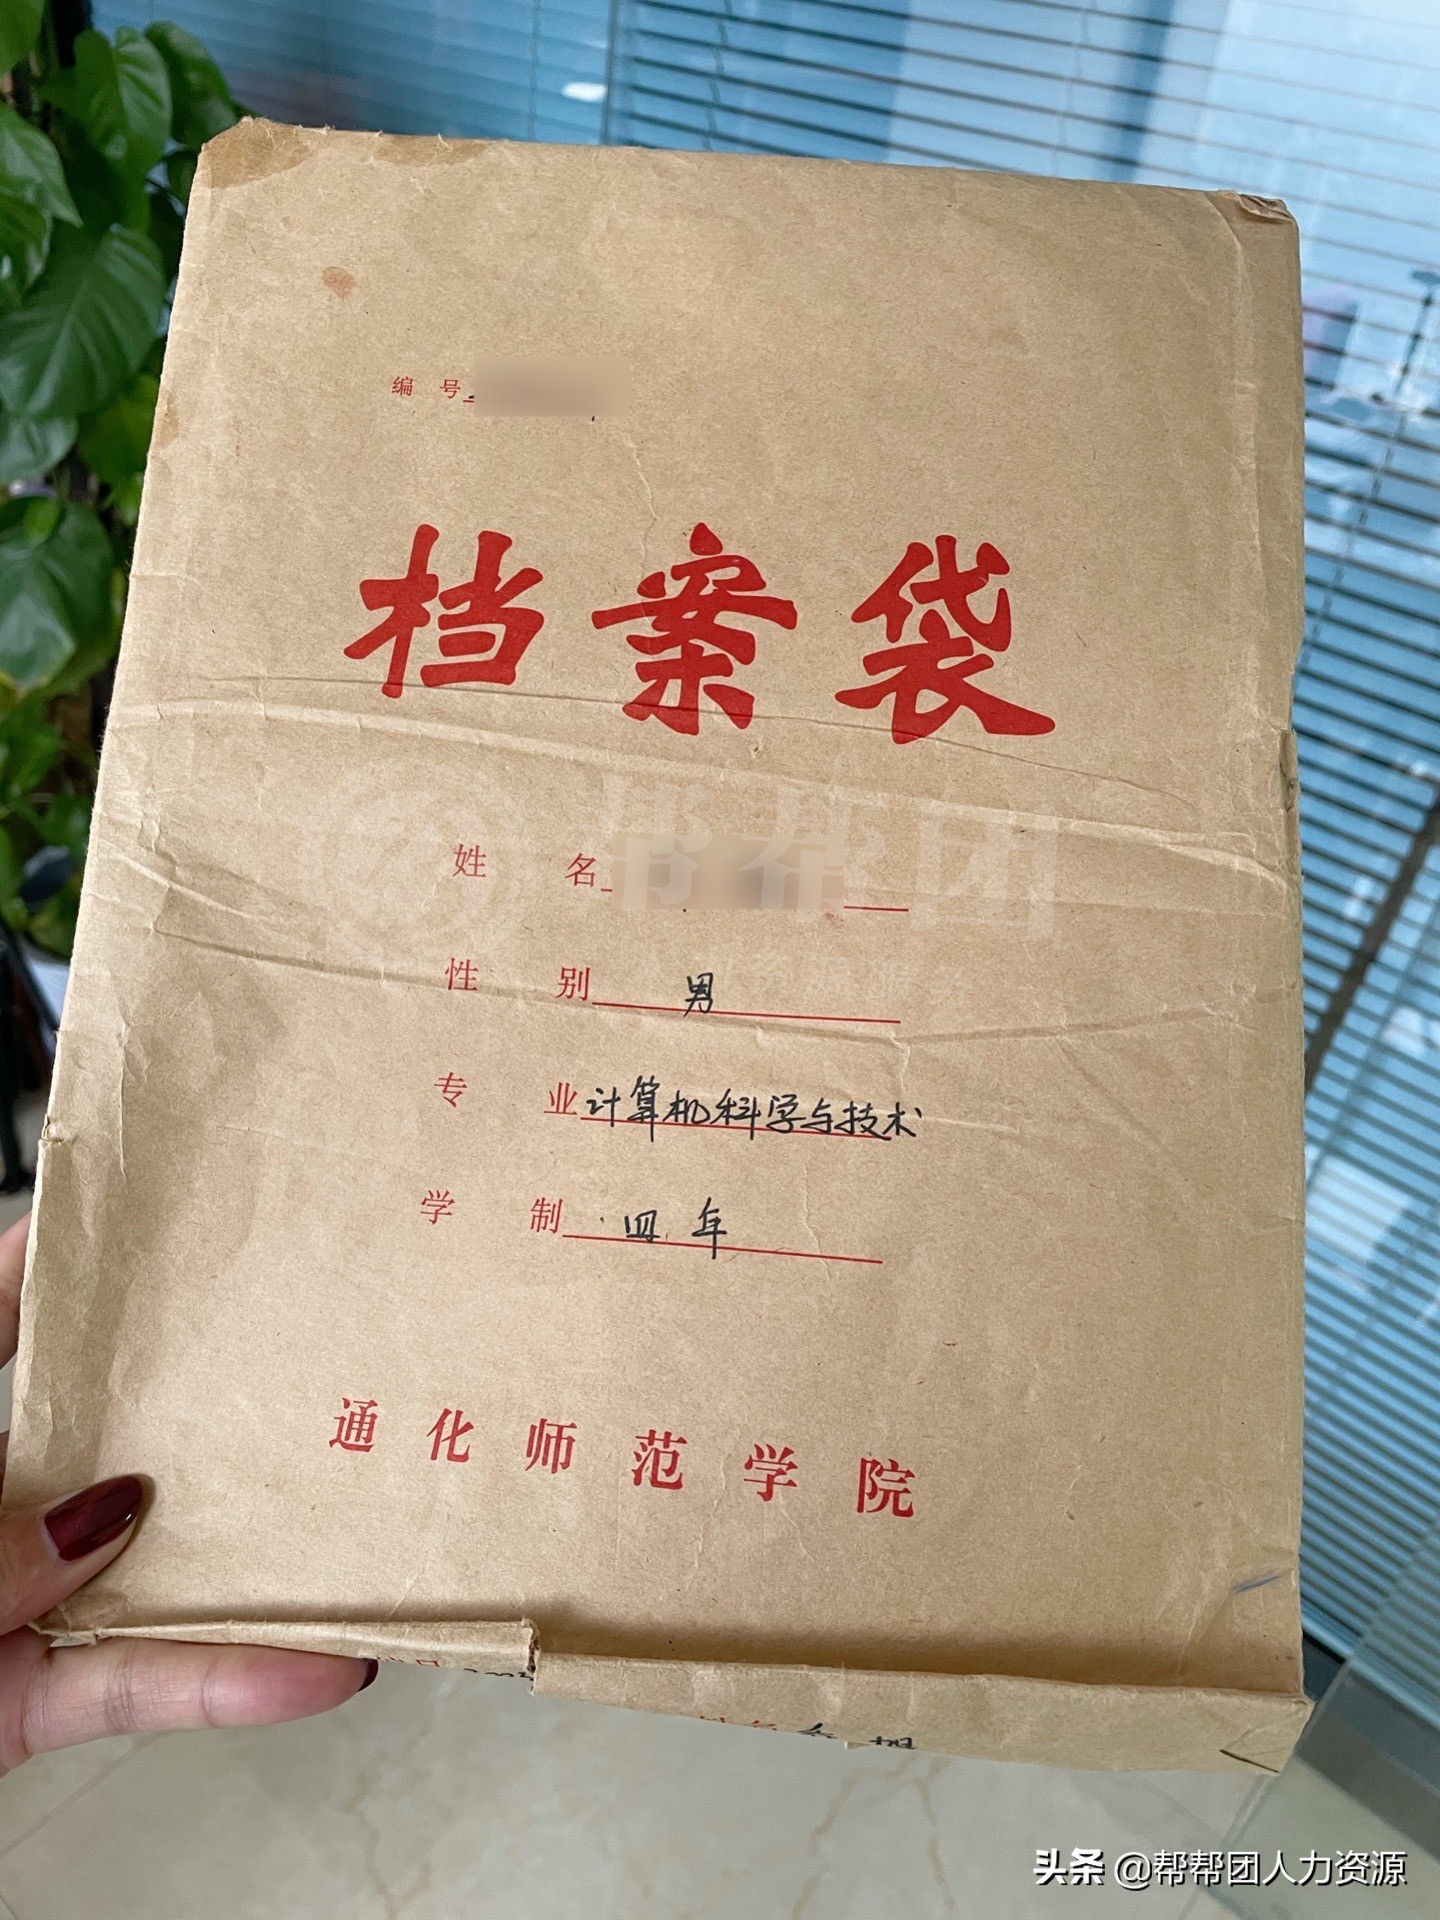 编 号
档案袋
姓 名
性 别 男
专 业 计算机科学与技术
学 制 四年
通化师范学院
帮帮团
头条 @帮帮团人力资源